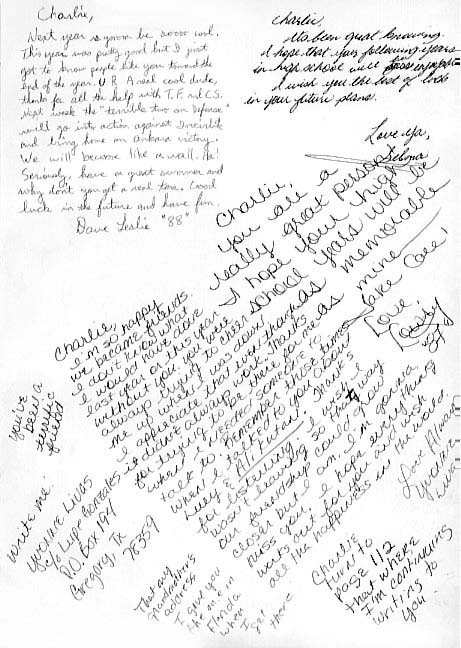 Charlie,
Next year is gonna be soooo cool.
This year was pretty good but I just
got to know people like you toward the
end of the year. U R A real cool dude,
thanks for all the help with T.F. and C.S.
Next week the "terrible two on Defense"
will go into action against Invincible
and bring home an ankara victory.
We will become like a wall. Ha!
Seriously, have a great summer and
why don't you get a real tan. Good
luck in the future and have fun.
Dave Leslie "88"
Charlie,
Its been great knowing.
I hope that your following years
in high school will be
I wish you the best of luck
in your future plans.
Love Ya,
Charlie,
You are a
really great person!
I hope your high
school years will be
as memorable
as mine
Take Care!
Love,
Charlie,
I'm so happy
we became friends.
I don't know what
I would have done
last year or this year
without you. You were
always trying to cheer
me up when I was down
I appreciate that even though
it didn't always work. Thanks
for trying to be there for me
when I needed someone to
talk to. Remember those times
when I talked to you about
Luey & Ali. Future. Thanks
for listening. I wish I
wasn't leaving so that way
our friendship could grow
closer but I am. I'm gonna
miss you. I hope everything
works out for you and wish
all the happiness in the world.
Love Always
Yvonne
you've
been a
terrific
friend
Write me.
Yvonne Livas
c/o Lupe Gonzales
P.O. Box 194
Gregory, Tx
78359
That my
Grandmother's
address
I give you
the one in
Florida
when
I get
there
Charlie
turn to
page 112
that where
I'm continuing
writing to
you.